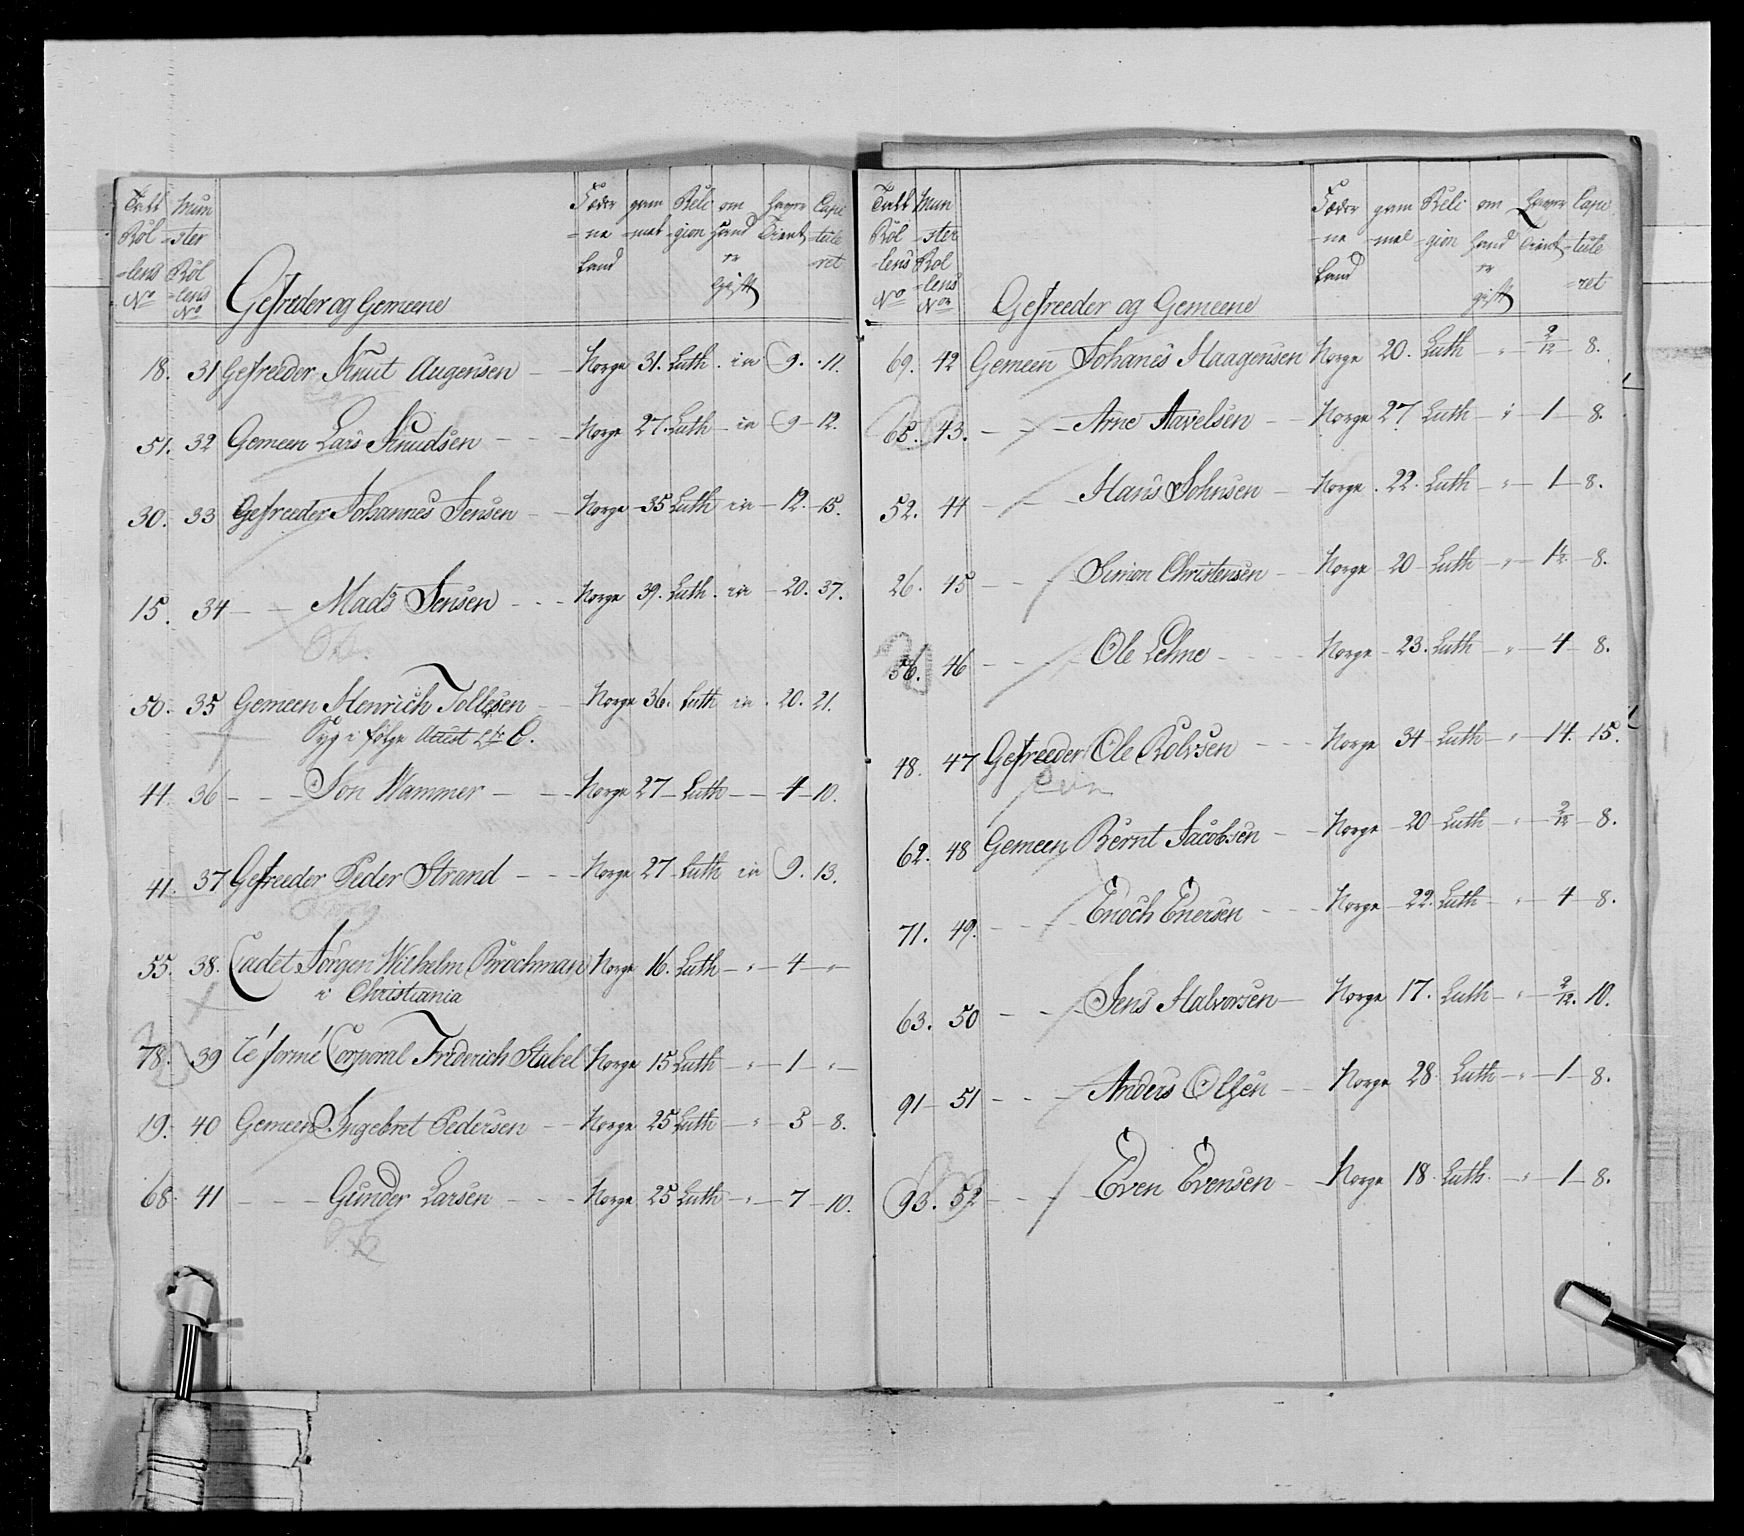 Tabt Mun Fæder gam Reli om haver Capi
Rol -ster -ne -mel -gion hand Tient -tule
-lens Rol Land er -ret
No -lens gift
No
Gefreder og Gemeene
18. 31 Gefreeder Knut Augensen — Norge 31. Luth. ia 9. 11.
51. 32 Gemeen Lars Knudsen - - - Norge 27. Luth - ia 9 - 12.
30. 33 Gefreeder Johannes Jensen - - Norge - 35 Luth ia - 12. - 15.
15. 34 - - Mads Jensen - - - Norge 39. Luth. ia - 20. 37.
50. 35 Gemeen Henrich Tollefsen - Norge 36. Luth ia. 20. 21.
Syg i følge Attest Ltr C.
44. 36 - - - Jon Hammer - - - Norge 27 - Luth - - 4 - 10.
41. 37 Gefreeder Peder Strand - - - Norge 27 - Luth ia 9. 13.
55. 38. Cadet Jørgen Wilhelm Brochman Norge 16. Luth - " - 4 - " -
i Christiania
78. 39 réformé Corporal Friderich Stabel Norge 15 Luth - " - 1 - " -
19. 40 Gemeen Ingebret Pedersen - - Norge 25 Luth - " - 5 - 8.
68. 41 - - - Gunder Larsen - - Norge 25 Luth - " - 7 - 10.
Tabt Mun Fæder gam Reli om haver Capi
Rol -ster -ne -mel -gion hand Tient -tule
-lens Rol Land er -ret
No -lens gift
No
Gefreeder og Gemeene
69. 42 Gemeen Johanes Haagensen Norge 20. Luth - " - 9/12 - 8.
65. 43. - - - Arne Aavelsen - - Norge 27 Luth - " - 1 - 8.
52. 44 - - - Hans Johnsen - Norge. 22. Luth - " - 1 - 8.
26. 45 - - - Simon Christensen - Norge 20 - Luth - " - 1/12 - 8.
56. 46 - - - Ole Lehne - - - Norge - 23. Luth - " - 4 - 8.
48. 47 Gefreeder Ole Rolvsen - - - Norge - 34 - Luth - " - 14. - 15.
62. 48 Gemeen Bernt Jacobsen - - Norge - 20 - Luth - " - 2/12 - 8.
71. 49. - - - Enoch Enersen - - - Norge - 22. Luth - " - 4 - 8.
63. 50 - - - Jens Halvorsen - Norge 17. Luth - " - 2/12. 10.
91 - 51 - - - Anders Olsen - - Norge 28 Luth - " - 1 - 8.
93. 52 - - - Even Evensen - Norge 18 Luth. - " - 1 - 8.